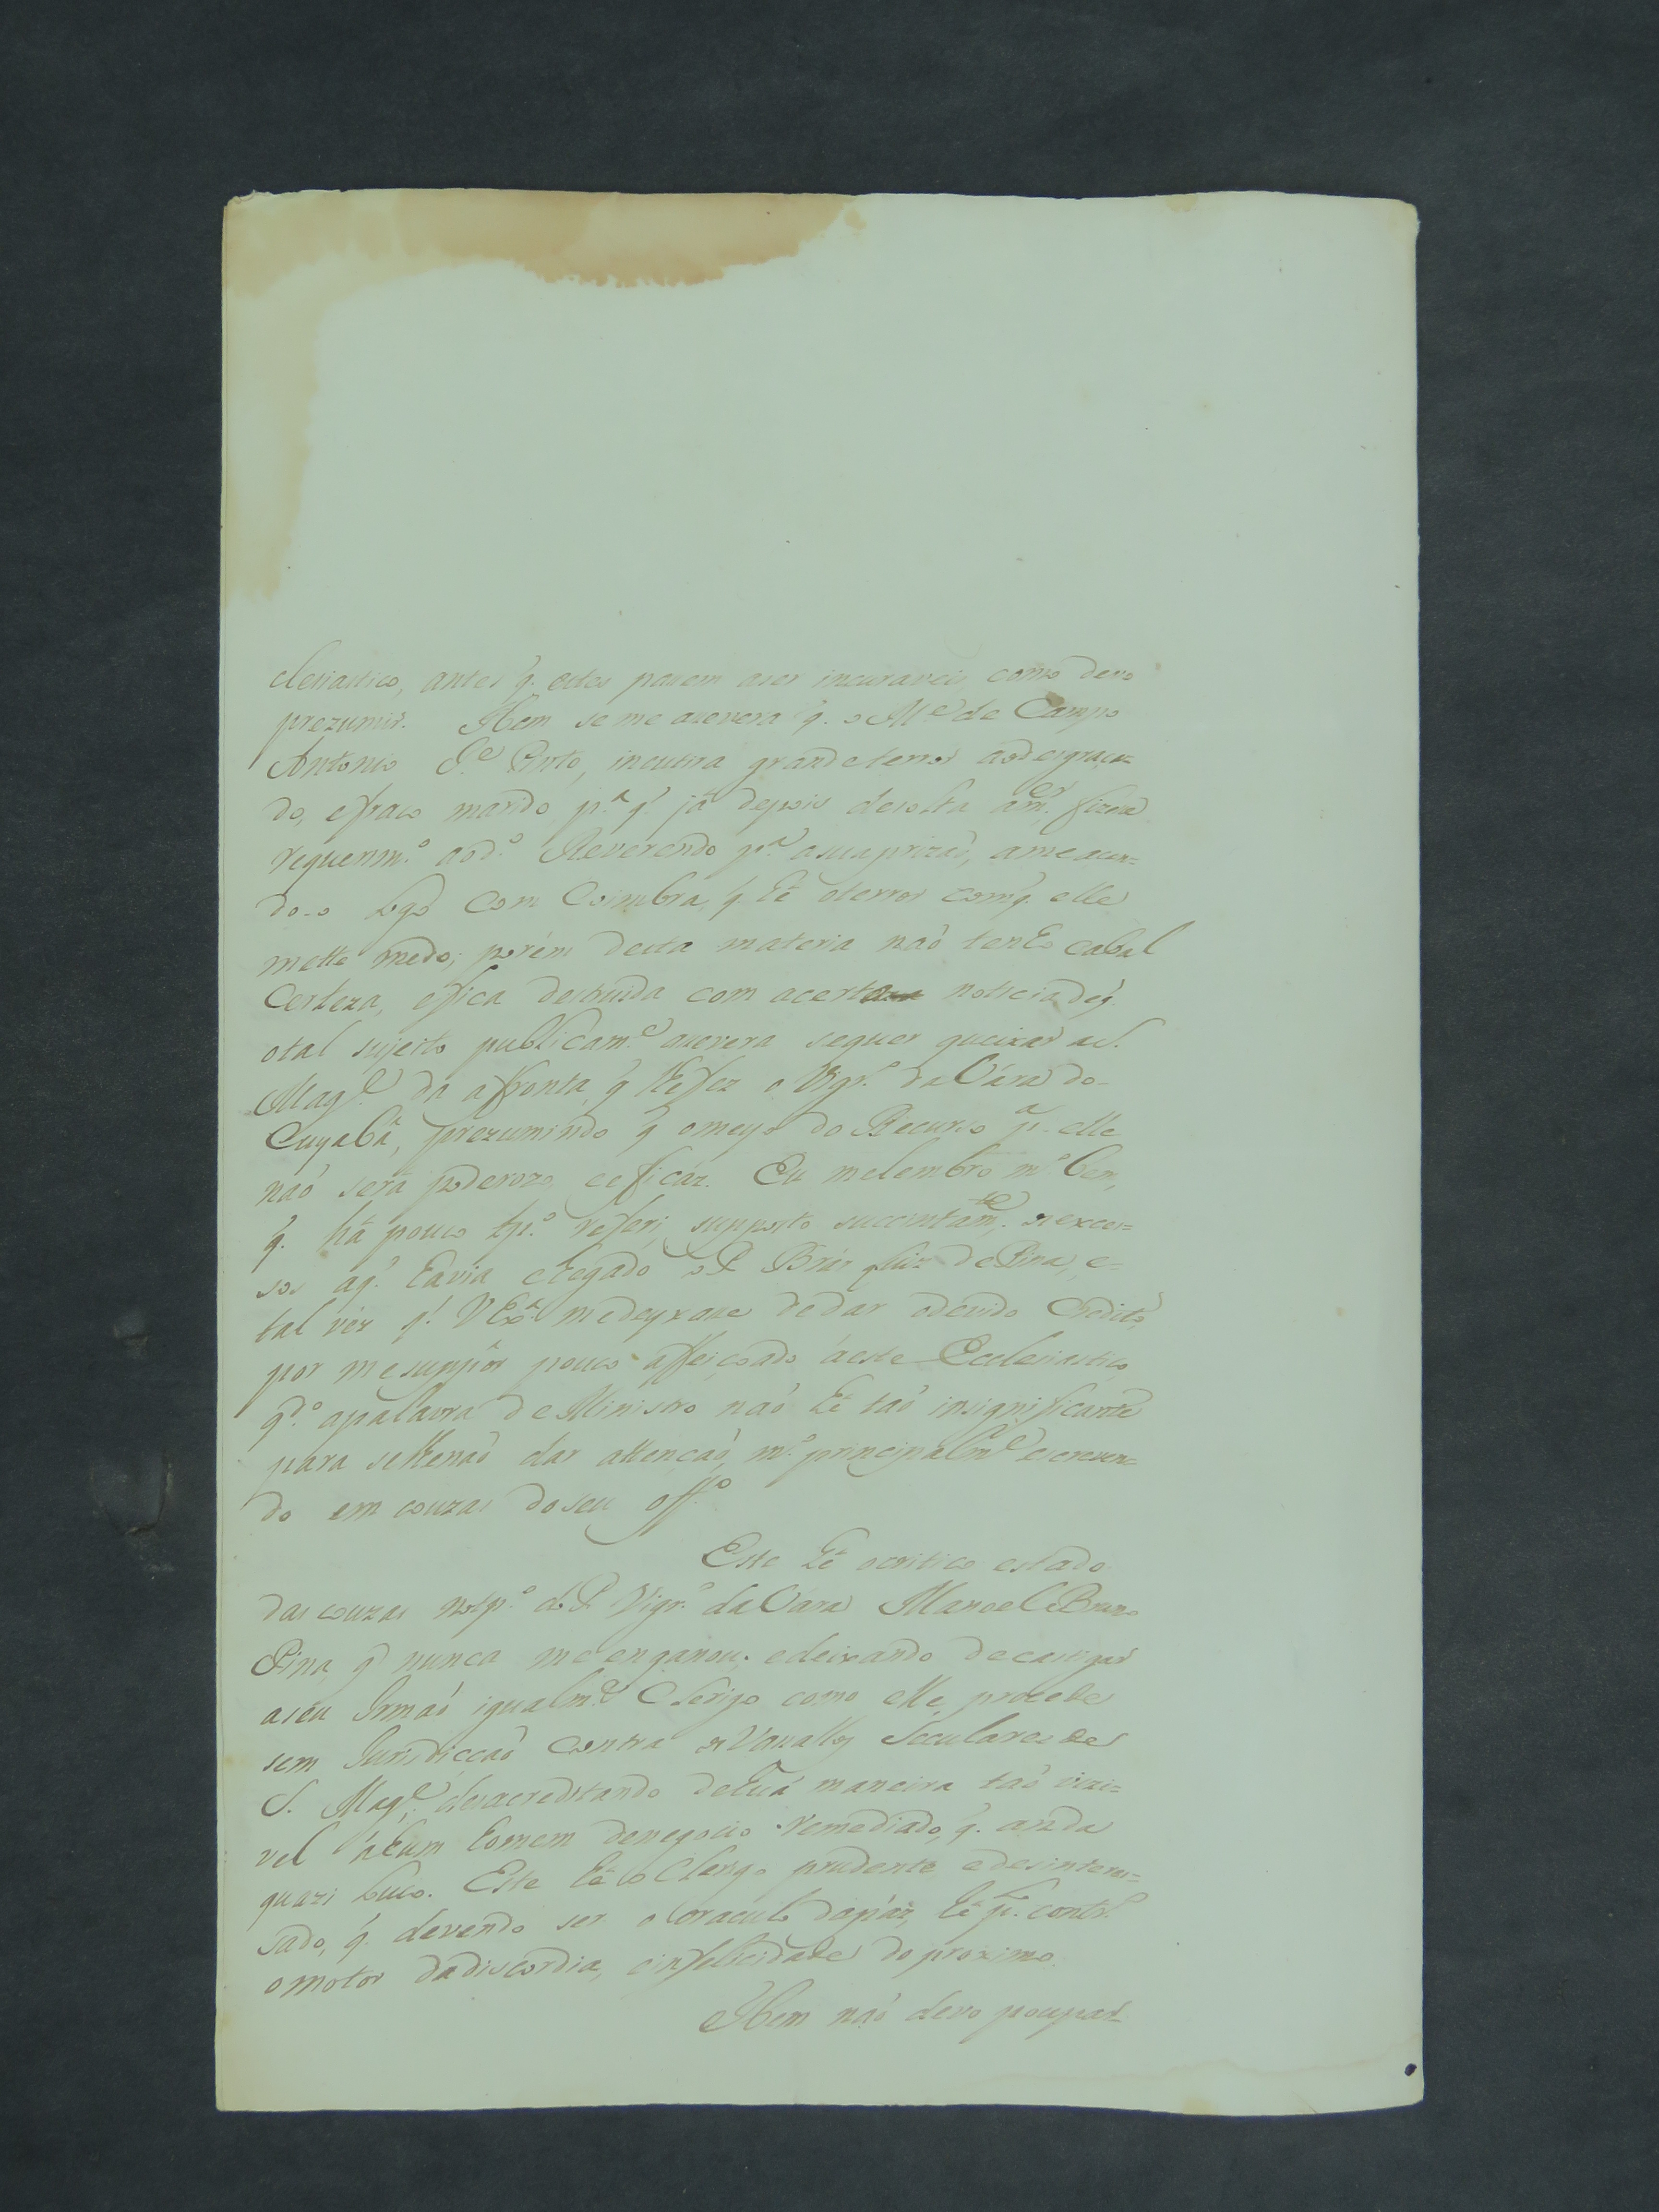 clesiastico, antes q̃. estes passem aser incuraveis como devo
prezumir. Item se me assevera q̃. o M.e de Campo
Antonio J.e Pinto, incutira grande terror ao desgraça=
do, e fraco marido p.a q̃. já depois de solta am.er fizesse
requerim.o aod.o Reverendo p.a a sua prizaõ, ameaçan=
do-o logo com Coimbra, q̃. hé oterror comq̃. elle
mette medo; porém desta materia naõ tenho cabal
Certeza, e fica destruida com acerta noticia deq̃.
otal sujeito publicam.e assevera se quer queixar a S.
Mag.e da affronta, q̃ lhefez o Vigr.o da Vára do-
Cuyabá, prezumindo q̃ omeyo do Recurso p.a elle
naõ será poderozo, e efficáz. Eu melembro m.o bem,
q̃. há pouco tp.o referi, supposto succintam.te os exces=
sos aq̃. havia chegado o P. Brás Luiz de Pina, e=
tal véz q̃. V Ex.a medeyxasse de dar odevido Credito,
por me suppôr pouco affeiçoado áeste Ecclesiastico,
qd.o apalavra de Ministro naõ hé taõ insignificante
para selhenaõ dar attençaõ, m.o principalm.e escreven=
do em couzas do seu off.o
Este hé o critico estado
das couzas notp.o do P. Vigr.o da Vara Manoel Bruno
Pina, q̃ nunca me enganou; edeixando decastigar
aseu Irmaõ igualm.e Clerigo como elle, procede
sem Jurisdicçaõ contra os Vassallos Seculares de
S. Mag.e, desacreditando dehuã maneira taõ vizi=
vel áhum homem denegocio remediado, q̃. anda
quazi louco. Este hé o Clerigo prudente e desinteres=
sado, q̃. devendo ser o oraculo dapáz, hé p.lo contr.o
omotor dadiscordia, einfelicidade do proximo.
Item naõ devo poupar-